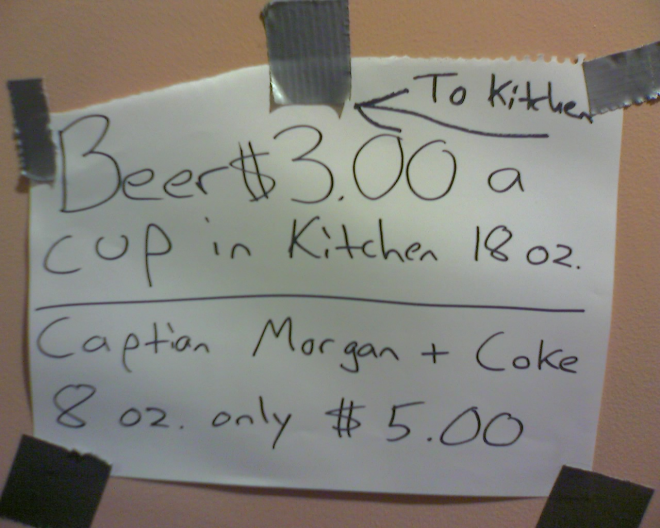 To Kitchen
Beer $3.00 a
cup in Kitchen 18 oz.
Caption Morgan + Coke
8 oz. only $5.00